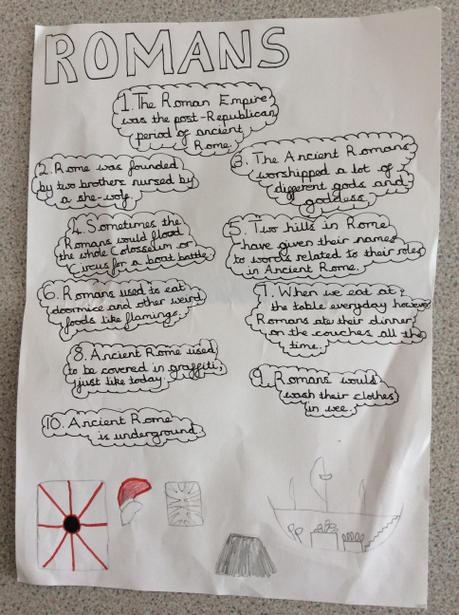 ROMANS
1. The Roman Empire
was the post-Republican
period of ancient
Rome.
2. Rome was founded
by two brothers nursed by
a she-wolf.
3. The Ancient Romans
worshipped a lot of
different gods and
goddess.
4. Sometimes the
Romans would flood
the whole Colosseum or
Circus for a boat battle.
5. Two hills in Rome
have given their names
to words related to their roles
in Ancient Rome.
6. Romans used to eat
doormice and other weird
foods like flamingo.
7. When we eat at
the table everyday however
Romans ate their dinner
on the couches all the
time.
8. Ancient Rome used
to be covered in graffiti,
just like today.
9. Romans would
wash their clothes
in wee.
10. Ancient Rome
is underground.